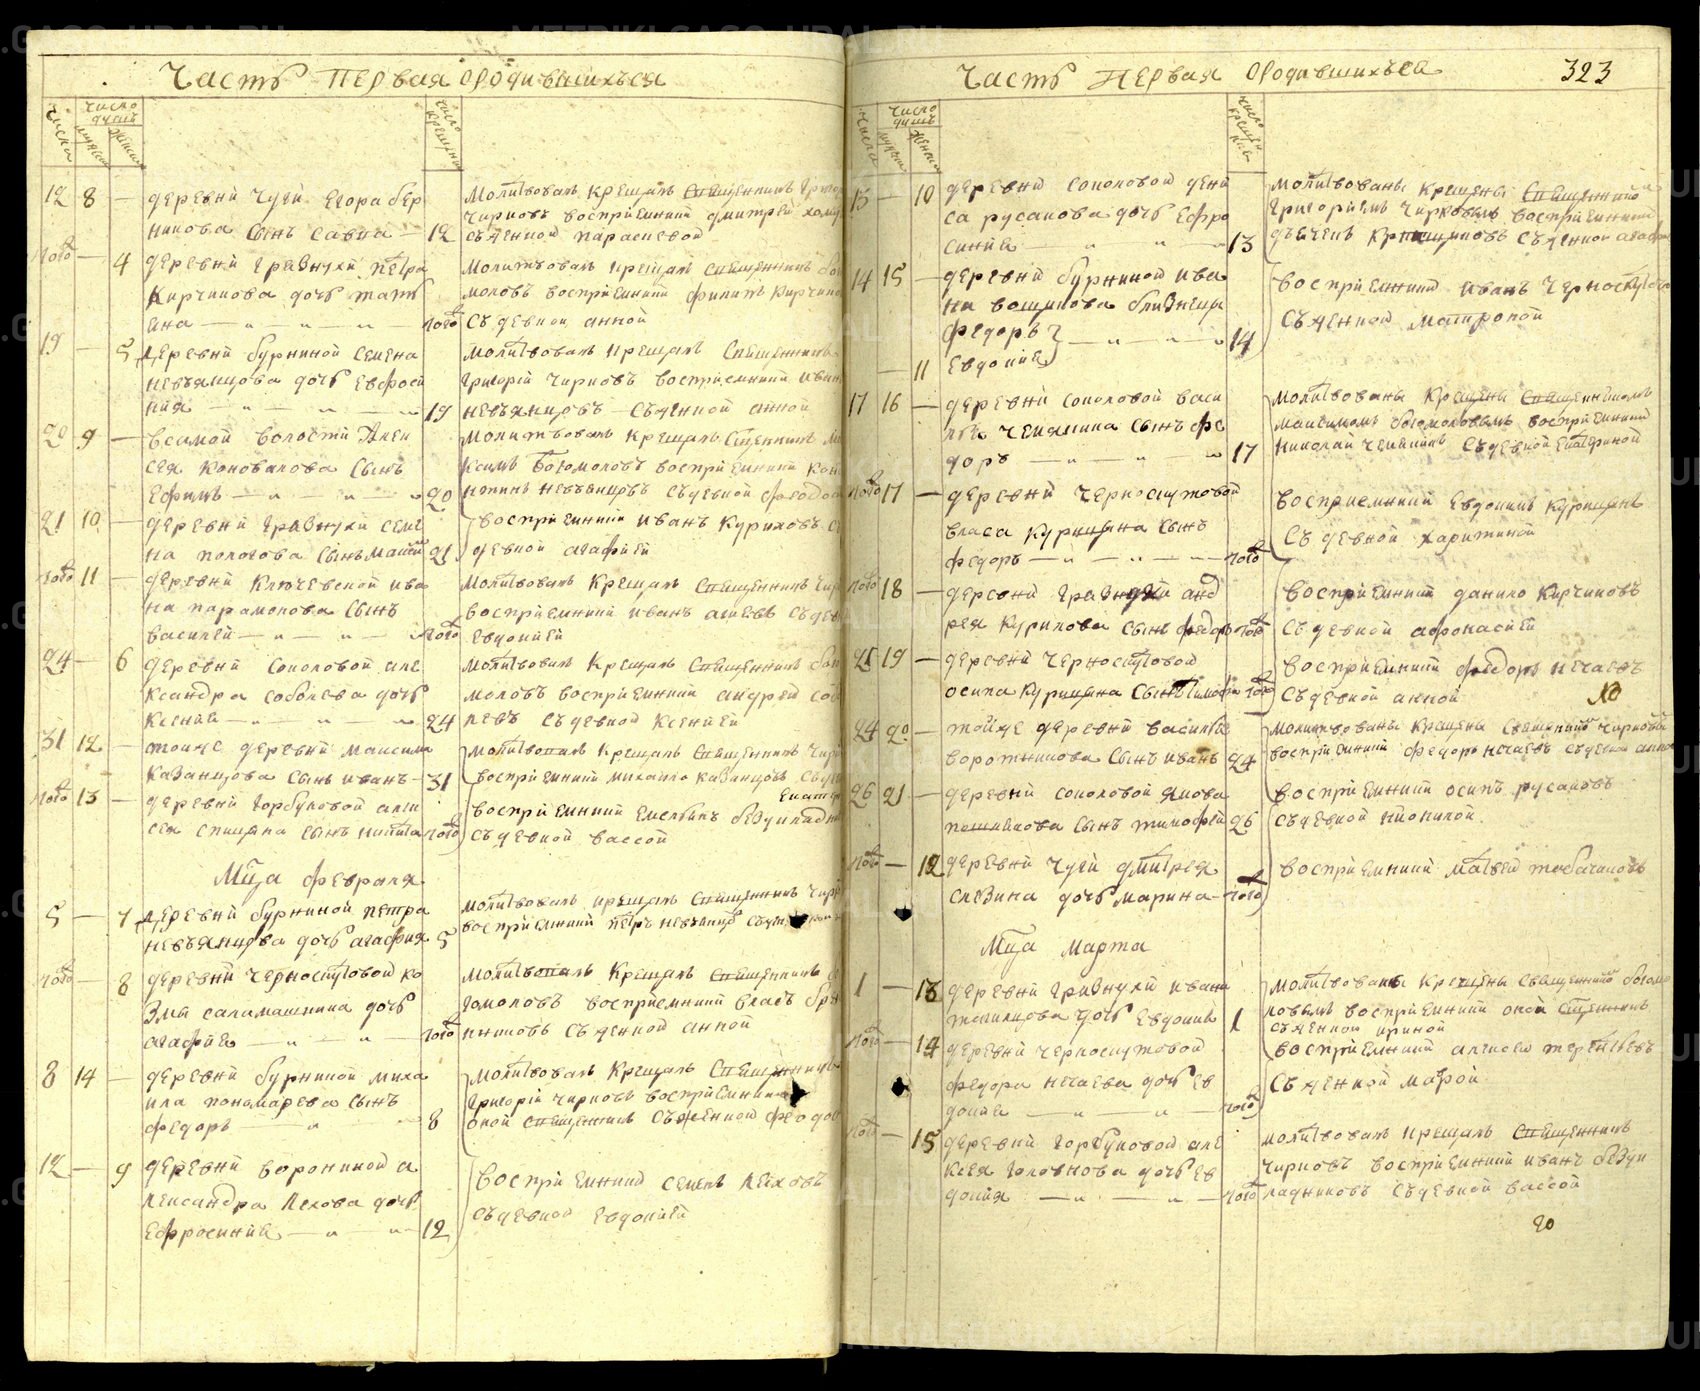 Часть Первая ородившихъся
числа
число душъ
мужеска
женска
число крещения
12 8 — деревни Чуги Егора бер
никова сынъ савва — 12
Молитвовалъ крещалъ священникъ григор
Чирковъ восприемники дмитрей
съ женкой парасковеой
того — 4 деревни грязнухи петра
Кирчикова дочь тать
яна — " — " — " — того
Молитвовалъ крещалъ священникъ бого
моловъ восприемники филипъ Кирчико
съ девкой анной
19 — 5 деревни бурниной семена
невьянцова дочь евфроси
ния — " — " — " 19
молитвовалъ крещалъ священникъ
григорей чирковъ восприемники иванъ
невьянцовъ съ женкой анной
20 9 — в самой волости Алек
сея коновалова сынъ
Ефимъ — " — " — 20
Молитвовалъ крещалъ священникъ ма
ксимъ Богомоловъ восприемники кон
невьянцовъ съ девкой феодос
21 10 — деревни грязнухи семе
на пологова сынъ 21
восприемники иванъ Куриковъ съ
девкой агафией
того 11 — деревни Ключевской ива
на парамонова сынъ
василей — " — " — того
молитвовалъ крещалъ священникъ чир
восприемники иванъ агиевъ съ дев
евдокией
24 — 6 деревни соколовой але
ксандра соболева дочь
ксения — " — " — 24
молитвовалъ крещалъ священникъ бого
моловъ восприемники андрей собо
левъ съ девкой ксенией
31 12 — тойже деревни максима
Казанцова сынъ иванъ — 31
молитвовалъ крещалъ священникъ чир
восприемники михайло казанцовъ съ дев
Екатер
того 13 — деревни горбуновой алек
сея спицына сынъ никита того
восприемники Емельянъ безукладн
съ девкой вассой
Мца февраля
5 — 7 деревни бурниной петра
невьянцова дочь агафия 5
молитвовалъ крещалъ священникъ чир
восприемники петръ невьянцовъ
того — 8 деревни черноскутовой ко
змы саламашкина дочь
агафия — " — " — того
молитвовалъ крещалъ священникъ бо
гомоловъ восприемники власъ
съ женкой анной
8 14 — деревни бурниной миха
ила пономарева сынъ
федоръ — " — 8
молитвовалъ крещалъ священникъ
григорей чирковъ восприемники
оной священникъ съ женкой феодо
12 — 9 деревни воронинной а
лександра Пехова дочь
Ефросиния — " — " — 12
восприемники семенъ пеховъ
съ девкой евдокией
Часть Первая ородившихъся 323
числа
число душъ
мужеска
женска
число крещения
13 — 10 деревни соколовой дени
са русакова дочь ефро
синия — " — " — 13
молитвованы крещены священникомъ
григорьемъ чирковымъ восприемники
съ женкой агафьей
14 15 — деревни бурниной ива
на вощикова близнецы
федоръ — " — " — 14
— 11 евдокия
восприемники иванъ Черноскутовъ
съ женкой матроной
17 16 — деревни соколовой васи
лья чемякина сынъ фе
доръ — " — " — 17
молитвованы крещены священникомъ
максимомъ богомоловымъ восприемники
николай чемякинъ съ девкой екатериной
того 17 — деревни черноскутовой
власа курицына сынъ
федоръ — " — " — того
восприемники Евдокимъ курицынъ
съ девкой харитиной
того 18 — деревни грязнухи анд
рея Курикова сынъ федоръ того
восприемники данило Кирчиковъ
съ девкой афонасией
21 19 — деревни черноскутовой
осипа курицына сынъ тимофей того
восприемники федоръ нечаевъ
съ девкой анной
24 20 — тойже деревни василья
воротникова сынъ иванъ 24
молитвованы крещены священникомъ чирковымъ
восприемники федоръ нечаевъ съ девкой анной
26 21 — деревни соколовой якова
сынъ тимофей 26
восприемники осипъ русаковъ
съ девкой
того — 12 деревни чуги дмитрея
слезина дочь марина — того
восприемники матвей табатчиковъ
Мца марта
1 — 13 деревни грязнухи ивана
дочь евдокия 1
молитвованы крещены священникомъ богомо
ловымъ восприемники оной священникъ
съ женкой ириной
того — 14 деревни черноскутовой
федора нечаева дочь ев
докия — " — " — того
восприемники алексей терентьевъ
съ женкой марфой
того — 15 деревни горбуновой але
ксея головнова дочь ев
докия — " — " — того
молитвовалъ крещалъ священникъ
чирковъ восприемники иванъ безук
ладниковъ съ девкой вассой
20